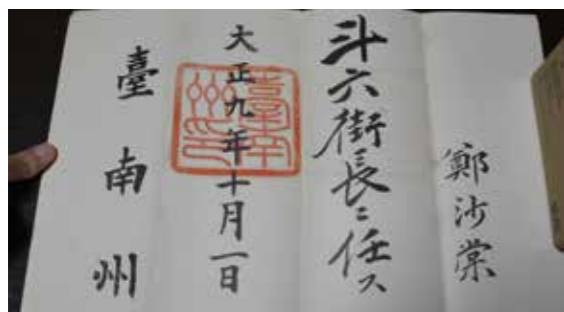 鄭沙棠
斗六街長ニ任ス
大正九年十月一日
臺南州
臺南州印